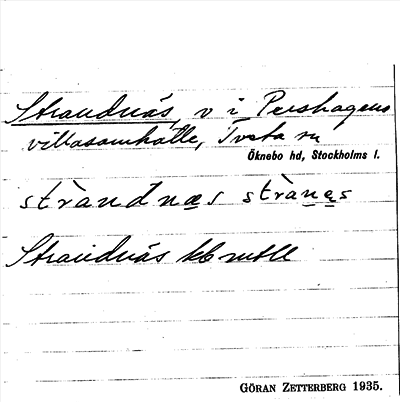 Strandnäs, v i Pershagens
villasamhälle, Tveta sn
Öknebo hd, Stockholms l.
stràndnæs stràn̲e̲s
Strandnäs kb mtll
GÖRAN ZETTERBERG 1935.